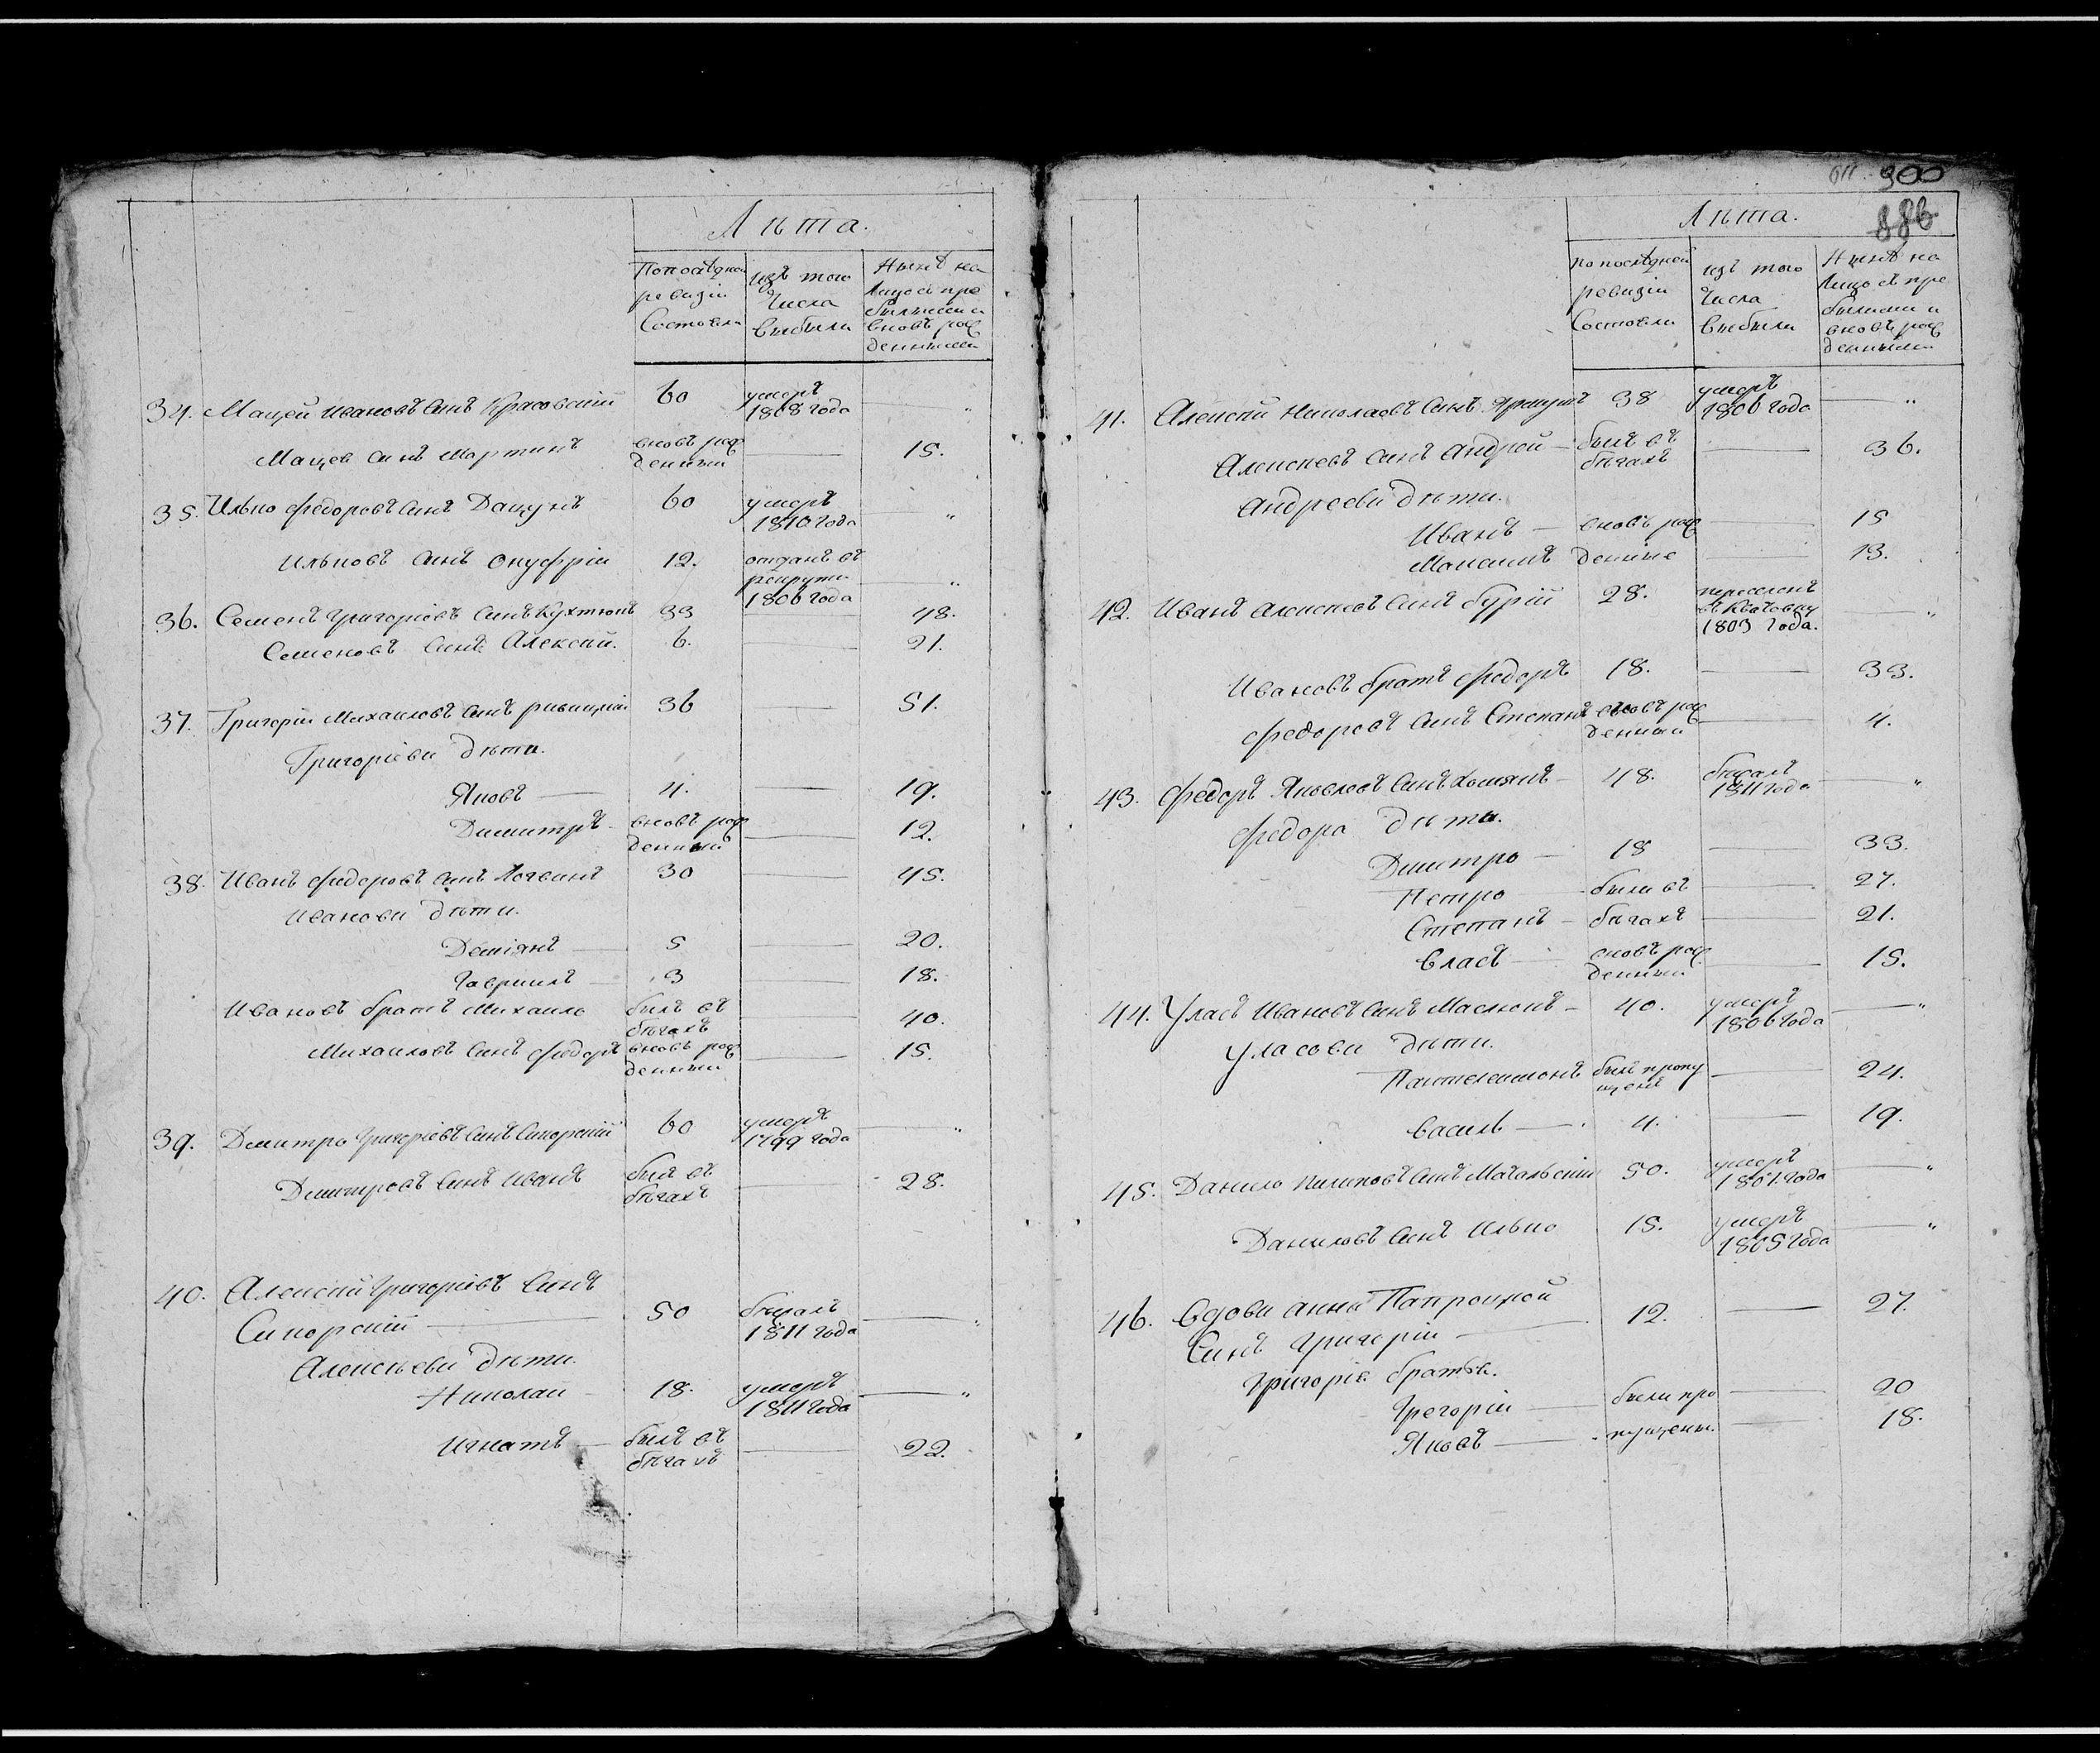 Лѣта.
По послѣдней ревизіи Состояли
изъ того Числа Выбыли
Нынѣ на Лицо съ прибылыми и вновь рожденными
34. Мацей Ивановъ Синъ Красовскій 60 умеръ 1808 года — „
Мацея Синъ Мартинъ вновь рожденный — 15.
35. Илько Федоровъ Синъ Дацунъ 60 умеръ 1810 года „
Ильковъ Синъ Онуфрій 12. отданъ въ рекруты 1806 года — „
36. Семенъ Григоріовъ Синъ Кухтюкъ 33 — 48.
Семеновъ Синъ Алексѣй. 6. — 21.
37. Григорій Михаиловъ Синъ 36 — 51.
Григоріеви дѣти.
Яковъ — 4. — 19.
Димитръ вновь рожденный — 12.
38. Иванъ Федоровъ Синъ Логвинъ 30 — 45.
Иванови дѣти.
Деміянъ — 5 — 20.
Гаврилъ — 3 — 18.
Ивановъ братъ Михаило былъ въ бѣгахъ — 40.
Михаиловъ Синъ Федоръ вновь рожденный — 15.
39. Дмитро Григоріевъ Синъ Сикорскій 60 умеръ 1799 года — „
Дмитровъ Синъ Иванъ былъ въ бѣгахъ — 28.
40. Алексѣй Григоріевъ Синъ
Сикорскій — 50 бѣжалъ 1811 года — „
Алексѣеви дѣти.
Николай 18. умеръ 1811 года — „
Игнатъ — былъ въ бѣгахъ — 22.
611 300
886
Лѣта.
по послѣдней ревизіи Состояли
изъ того Числа Выбыли
Нынѣ на Лицо съ прибылыми и вновь рожденными
41. Алексѣй Николаевъ Синъ 38 умеръ 1806 года — „
Алексѣевъ Синъ Андрей — былъ въ бѣгахъ — 36.
Андрееви дѣти.
Иванъ — вновь рож — 15
Максимъ денные — 13.
42. Иванъ Алексѣевъ Синъ Бурій 28. переселенъ въ 1803 года. — „
Ивановъ братъ Федоръ 18. — 33.
Федоровъ Синъ Степанъ вновь рожденный — 4.
43. Федоръ Яковлевъ Синъ Хомякъ — 48. бѣжалъ 1811 года — „
Федора дѣти.
Дмитро — 18 — 33.
Петро — были въ — 27.
Степанъ — бѣгахъ — 21.
Власъ — вновь рожденный — 15.
44. Уласъ Ивановъ Синъ Маслюкъ — 40. умеръ 1806 года — „
Уласови дѣти.
Пантелеимонъ былъ пропущенъ — 24.
Василь — 4. — 19.
45. Данило Пилиповъ Синъ Магальскій 50. умеръ 1801. года — „
Даниловъ Синъ Илько 15. умеръ 1805 года — „
46. Вдови Анни Папроцкой
Синъ Григорій — 12. — 27.
Григорія братья.
Грегорій — были про — 20
Яковъ — пущены. — 18.